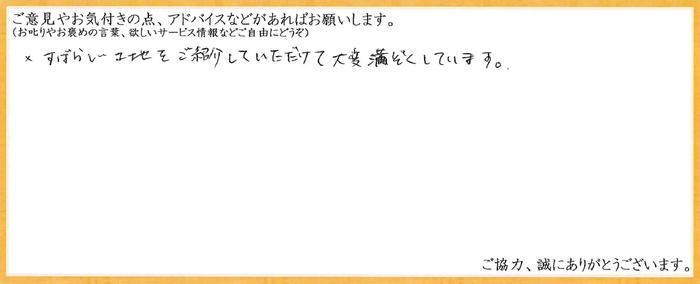 ご意見やお気付きの点、アドバイスなどがあればお願いします。
(お叱りやお褒めの言葉、欲しいサービス情報などご自由にどうぞ)
× すばらしい土地をご紹介していただけて大変満ぞくしています。
ご協力、誠にありがとうございます。